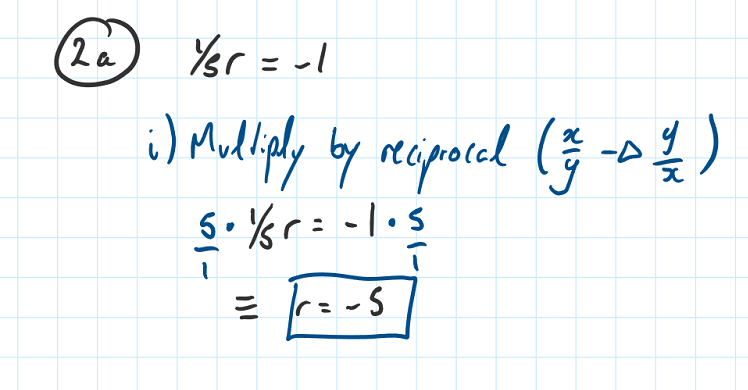 2a 1/5r = -1
i) Multiply by reciprocal (x/y -▷ y/x)
5/1 · 1/5 r = -1 · 5/1
≡ r = -5